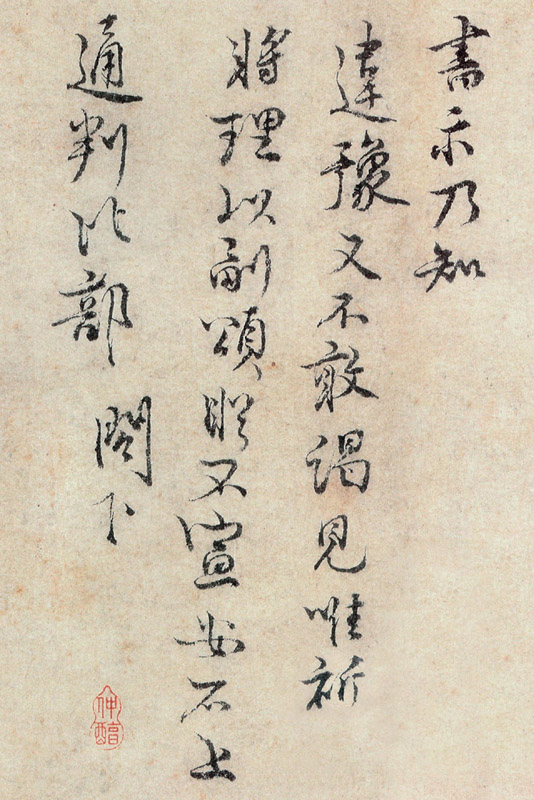 書示乃知
違豫又不敢謁見唯祈
將理以副頌盼不宣安石上
通判比部 閣下
仲醇